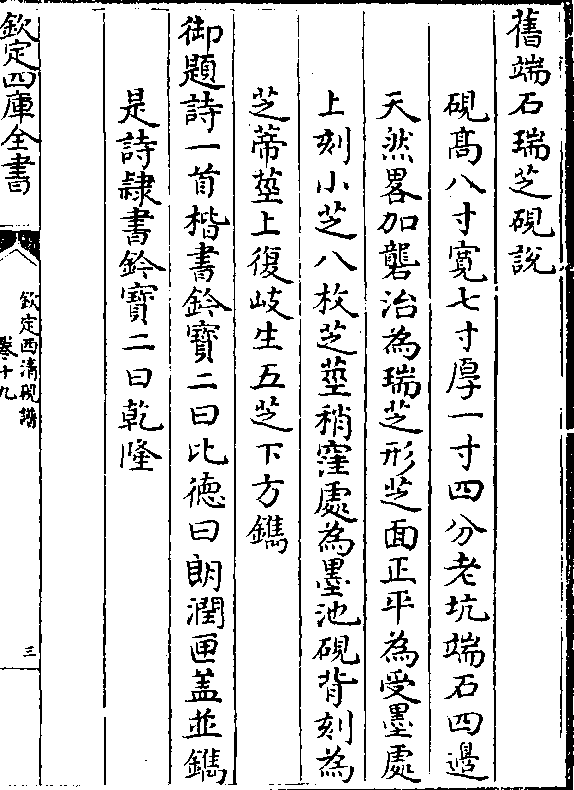 舊端石瑞芝硯說
硯髙八寸寛七寸厚一寸四分老坑端石四邊
天然畧加礱治為瑞芝形芝面正平為受墨處
上刻小芝八枚芝莖稍窪處為墨池硯背刻為
芝蒂莖上復岐生五芝下方鐫
御題詩一首楷書鈐寳二曰比徳曰朗潤匣葢並鐫
是詩隸書鈐寳二曰乾隆
欽定四庫全書
欽定西清硯譜
卷十九
三